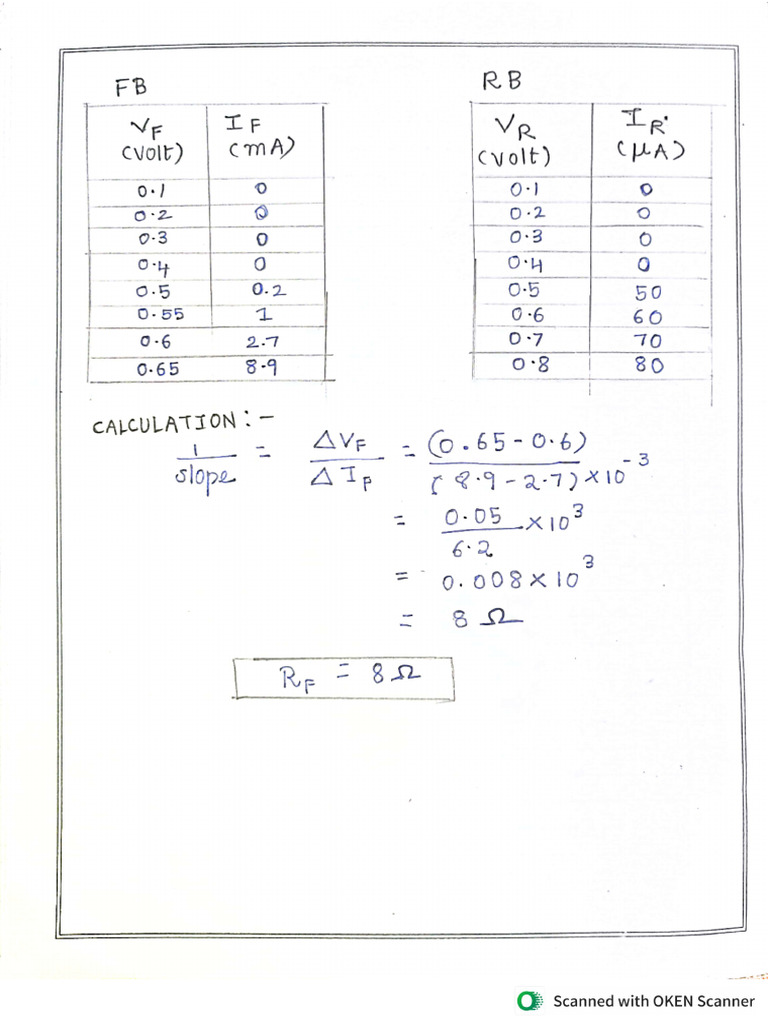 FB
V_F (Volt) I_F (mA)
0.1 0
0.2 0
0.3 0
0.4 0
0.5 0.2
0.55 1
0.6 2.7
0.65 8.9
RB
V_R (Volt) I_R (μA)
0.1 0
0.2 0
0.3 0
0.4 0
0.5 50
0.6 60
0.7 70
0.8 80
CALCULATION :-
1/slope = ΔV_F/ΔI_F = (0.65-0.6)/((8.9-2.7)×10^-3)
= 0.05/6.2 ×10^3
= 0.008×10^3
= 8 Ω
R_F = 8Ω
Scanned with OKEN Scanner